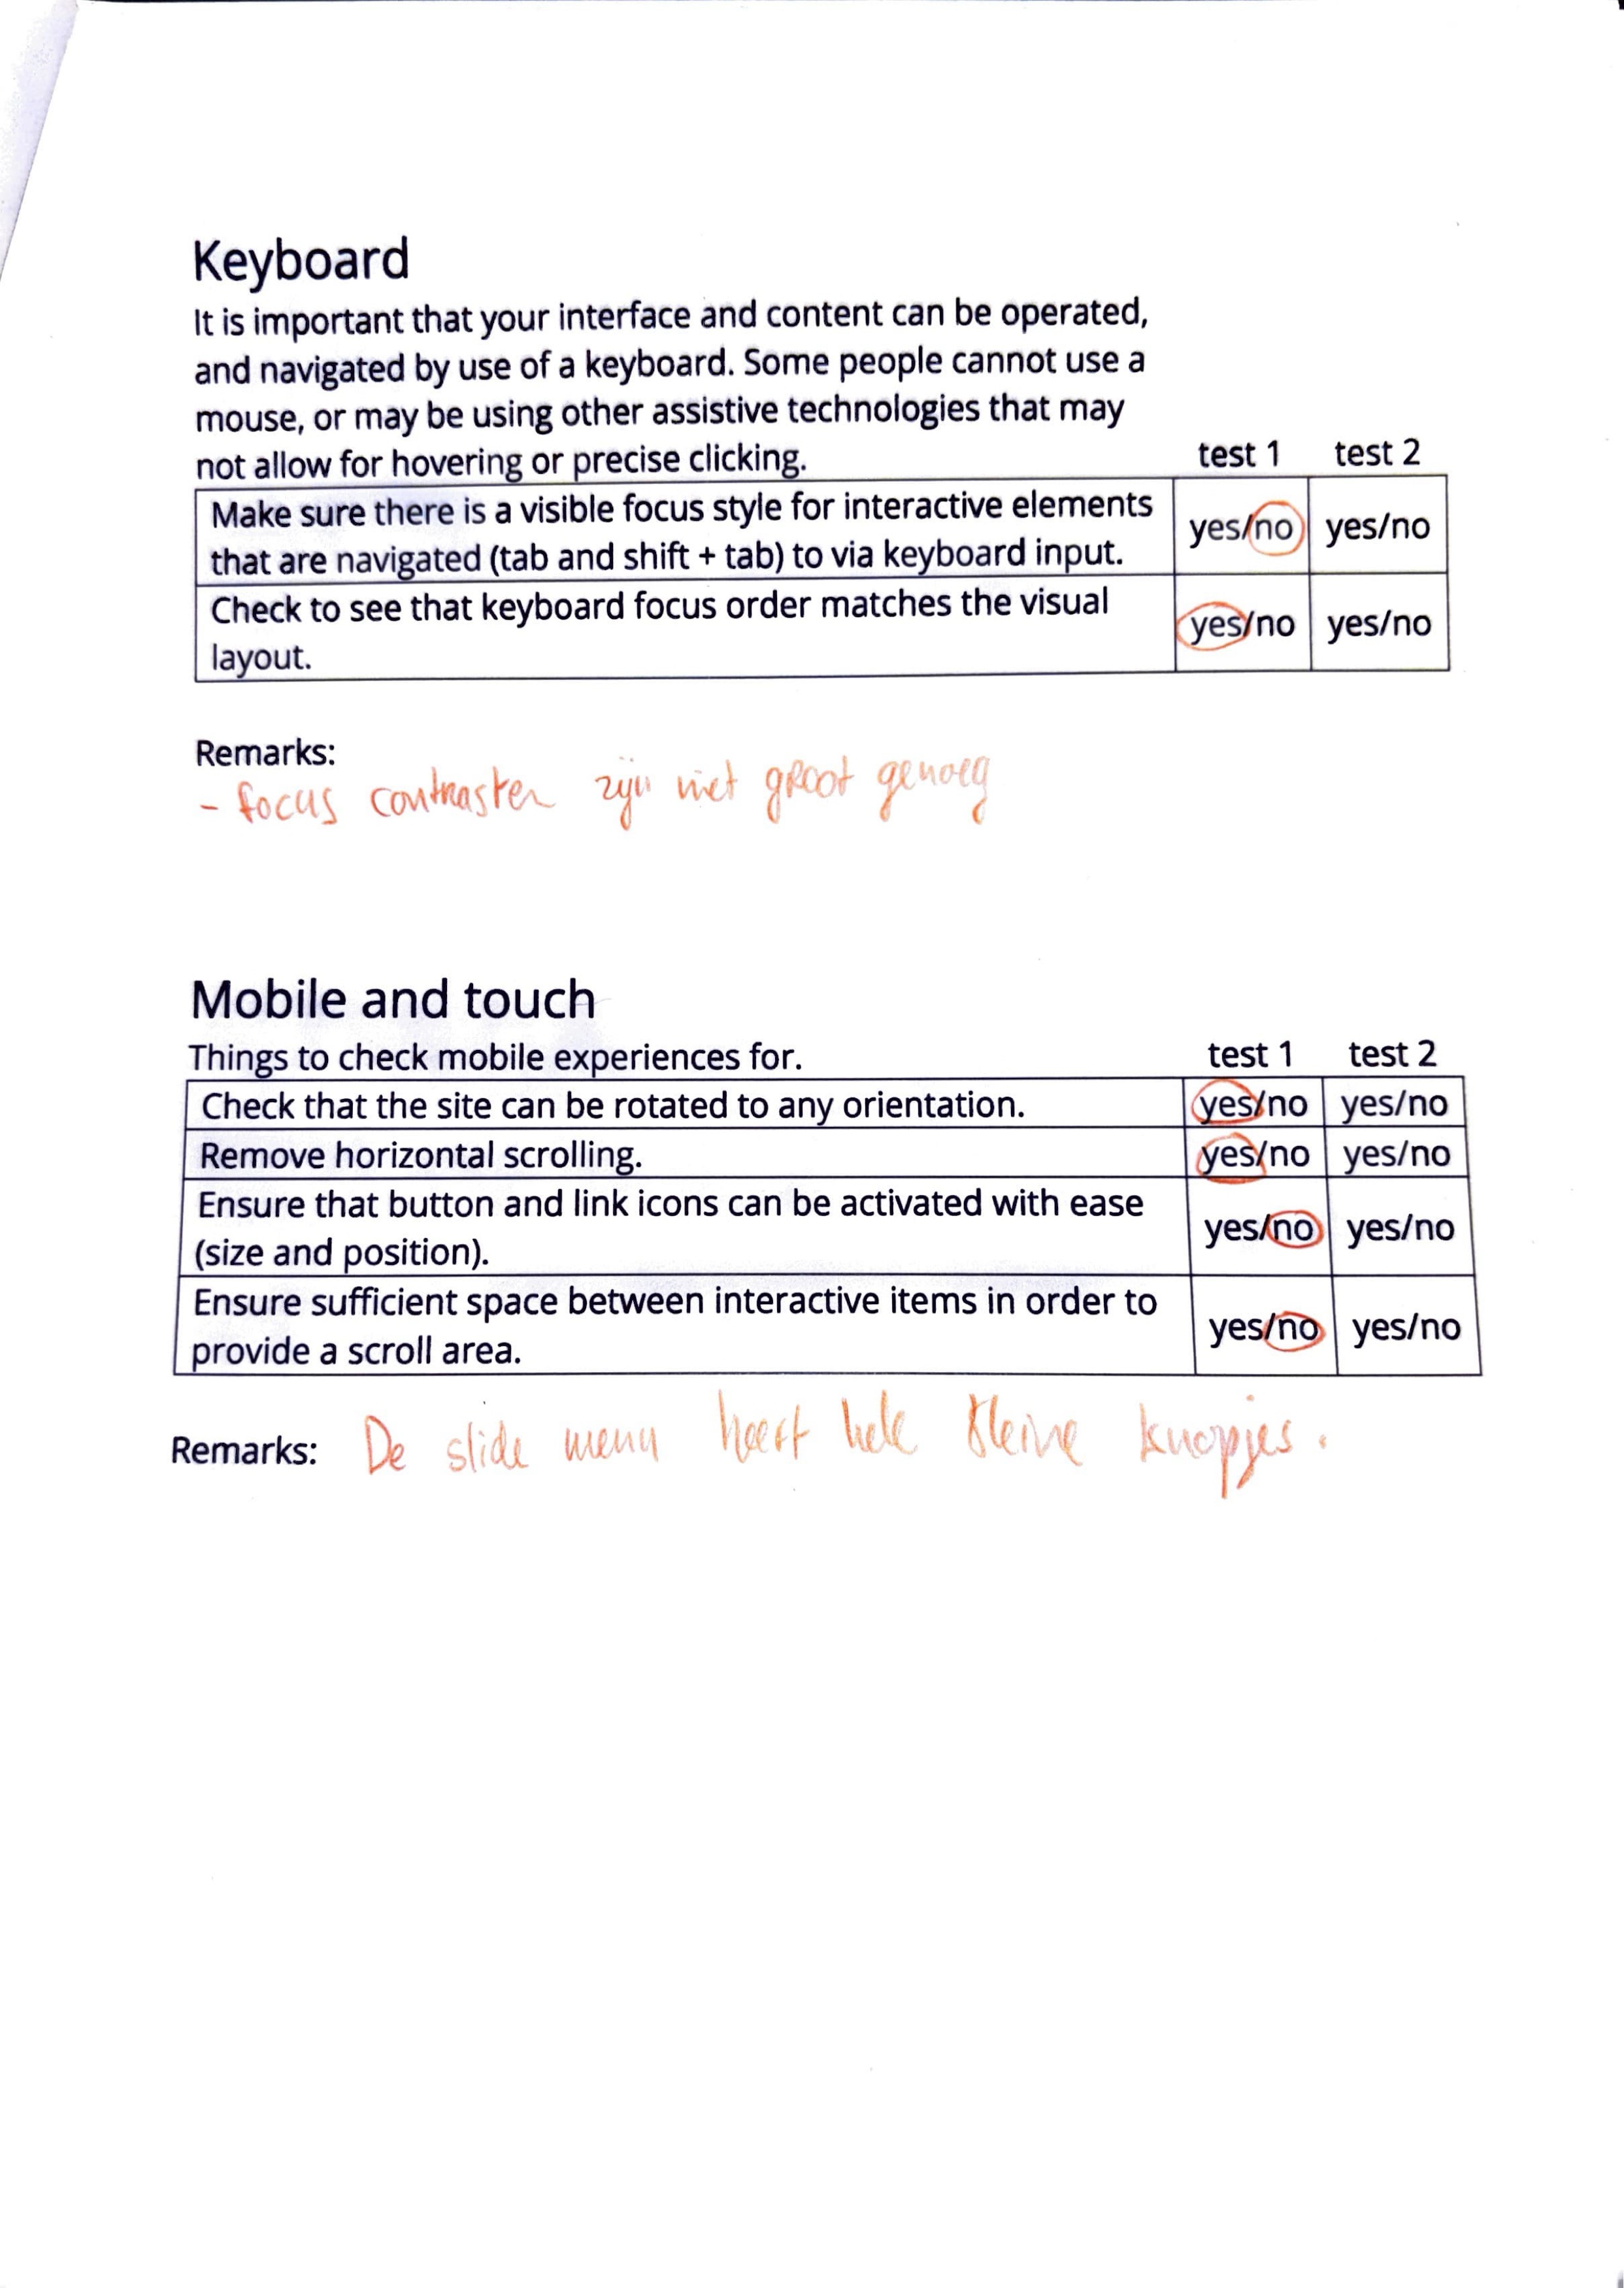 Keyboard
It is important that your interface and content can be operated,
and navigated by use of a keyboard. Some people cannot use a
mouse, or may be using other assistive technologies that may
not allow for hovering or precise clicking. test 1 test 2
Make sure there is a visible focus style for interactive elements
that are navigated (tab and shift + tab) to via keyboard input.
yes/no yes/no
Check to see that keyboard focus order matches the visual
layout.
yes/no yes/no
Remarks:
- focus contrasten zijn niet groot genoeg
Mobile and touch
Things to check mobile experiences for. test 1 test 2
Check that the site can be rotated to any orientation. yes/no yes/no
Remove horizontal scrolling. yes/no yes/no
Ensure that button and link icons can be activated with ease
(size and position).
yes/no yes/no
Ensure sufficient space between interactive items in order to
provide a scroll area.
yes/no yes/no
Remarks: De slide menu heeft hele kleine knopjes.